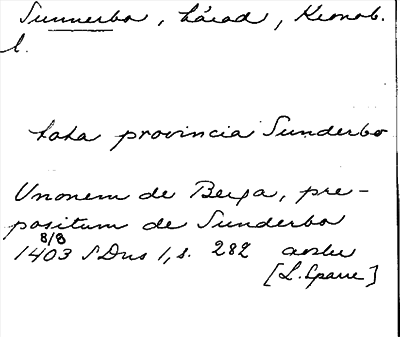 Sunnerbo, härad, Kronob.
l.
tota provincia Sunderbo
Unonem de Berga, pre-
positum de Sunderbo
8/8
1403 SDns 1, s. 282 avskr
[L. Sparre]